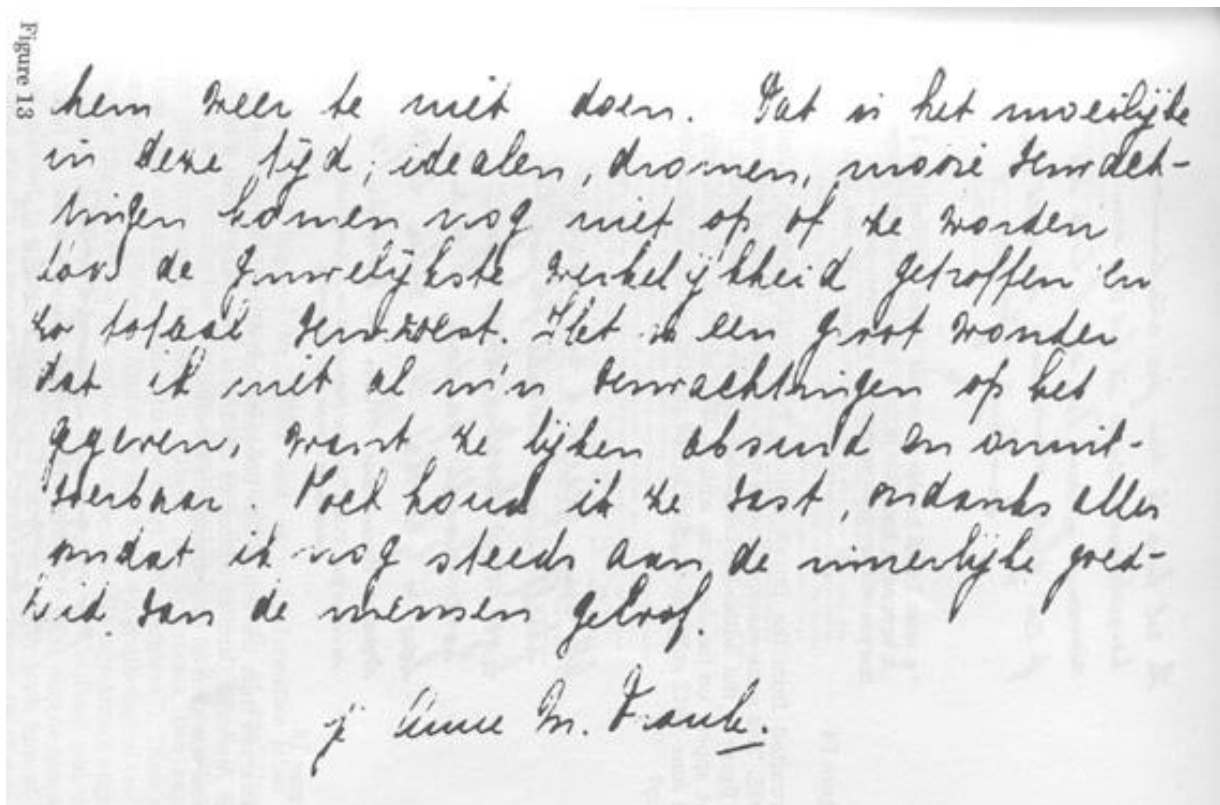 Figure 13
hem weer te niet doen. Dat is het moeilijke
in deze tijd; idealen, dromen, mooie verwach-
tingen komen nog niet op of ze worden
door de gruwelijkste werkelijkheid getroffen en
zo totaal verwoest. Het is een groot wonder
dat ik niet al m'n verwachtingen op heb
gegeven, want ze lijken absurd en onuit-
voerbaar. Toch houd ik ze vast, ondanks alles
omdat ik nog steeds aan de innerlijke goed-
heid van de mensen geloof.
je Anne M. Frank.